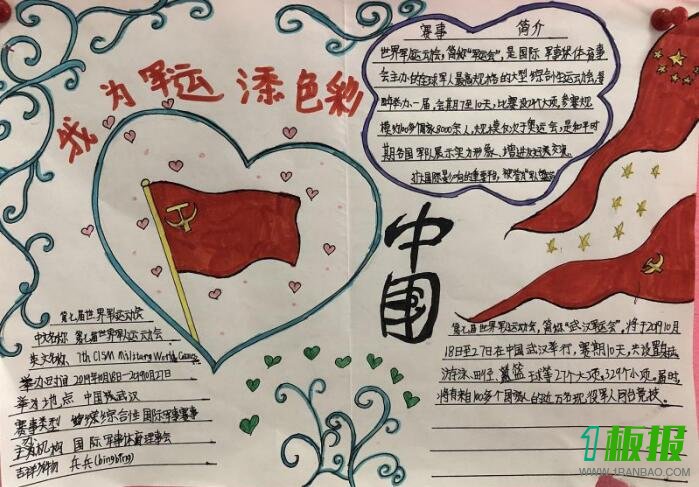 我为军运添色彩
赛事 简介
世界军人运动会，简称"军运会"，是国际军事体育理事
会主办的全球军人最高规格的大型综合性运动会，每
四年举办一届，会期7至10天，比赛设27个大项，参赛规
模约100多个国家8000余人，规模仅次于奥运会，是和平时
期各国军队展示实力形象、增进友好交流、
扩大国际影响的重要平台，被誉为
中国
第七届世界军人运动会
中文名称 第七届世界军人运动会
英文名称 7th CISM Military World Games
举办时间 2019年10月18日-2019年10月27日
举办地点 中国武汉
赛事类型 综合性国际军事赛事
主办机构 国际军事体育理事会
吉祥物 兵兵(bingbing)
第七届世界军人运动会，简称"武汉军运会"，将于2019年10月
18日至27日在中国武汉举行，赛期10天，共设置射击、
游泳、田径、篮球等27个大项、329个小项。届时，
将有来自100多个国家的近万名现役军人同台竞技。
1板报
WWW.1BANBAO.COM